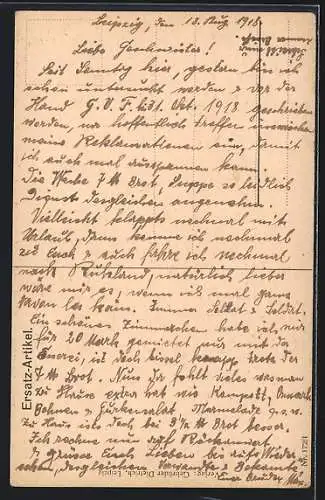 Leipzig, den 18. Aug. 1918.
Liebe Geschwister!
Seit Sonntag hier, gestern bin ich
schon untersucht worden u. vor der
Hand G. V. F. bis 31. Okt. 1918 geschrieben
worden, na hoffentlich treffen inzwischen
meine Reklamationen ein, damit
ich auch mal ausspannen kann.
Die Woche 7 ℔ Brot, Suppe so leidlich
Dienst desgleichen angenehm.
Vielleicht klappts nochmal mit
Urlaub, dann komme ich nochmal
zu Euch u. auch fahre ich nochmal
nach Rußland, natürlich lieber
wäre mir es, wenn ich mal ganz
davon los käm. Immer Soldat u. Soldat.
Ein schönes Zimmerchen habe ich mir
für 20 Mark gemietet nur mit der
ist doch bissel knapp trotz der
7 ℔ Brot. Nun da fehlt vieles was man
zu Hause extra hat wie Kompott,
Bohnen u. Gurkensalat, Marmelade u.s.w.
Zu Haus ists doch bei 3½ ℔ Brot besser.
Ich rechne nun auf Rückantwort
u. grüsse Euch Lieben bis aufs Wieder
sehen, desgleichen Verwandte u. Bekannte
Euer Bruder Max.
Ersatz-Artikel.
Verlag Gebrüder Dietrich, Leipzig
Nr. 1721